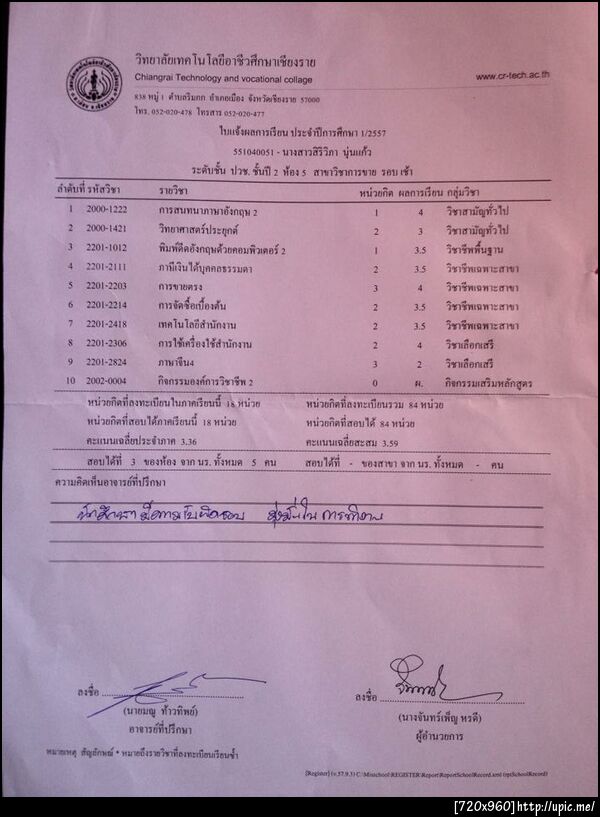 วิทยาลัยเทคโนโลยีอาชีวศึกษาเชียงราย
Chiangrai Technology and vocational collage
www.cr-tech.ac.th
838 หมู่ 1 ตำบลริมกก อำเภอเมือง จังหวัดเชียงราย 57000
โทร. 052-020-478 โทรสาร 052-020-477
ใบแจ้งผลการเรียน ประจำปีการศึกษา 1/2557
551040051 - นางสาวสิริวิภา นุ่นแก้ว
ระดับชั้น ปวช. ชั้นปี 2 ห้อง 5 สาขาวิชาการขาย รอบ เช้า
ลำดับที่ รหัสวิชา รายวิชา หน่วยกิต ผลการเรียน กลุ่มวิชา
1 2000-1222 การสนทนาภาษาอังกฤษ 2 1 4 วิชาสามัญทั่วไป
2 2000-1421 วิทยาศาสตร์ประยุกต์ 2 3 วิชาสามัญทั่วไป
3 2201-1012 พิมพ์ดีดอังกฤษด้วยคอมพิวเตอร์ 2 1 3.5 วิชาชีพพื้นฐาน
4 2201-2111 ภาษีเงินได้บุคคลธรรมดา 2 3.5 วิชาชีพเฉพาะสาขา
5 2201-2203 การขายตรง 3 4 วิชาชีพเฉพาะสาขา
6 2201-2214 การจัดซื้อเบื้องต้น 2 3.5 วิชาชีพเฉพาะสาขา
7 2201-2418 เทคโนโลยีสำนักงาน 2 3.5 วิชาชีพเฉพาะสาขา
8 2201-2306 การใช้เครื่องใช้สำนักงาน 2 4 วิชาเลือกเสรี
9 2201-2824 ภาษาจีน4 3 2 วิชาเลือกเสรี
10 2002-0004 กิจกรรมองค์การวิชาชีพ 2 0 ผ. กิจกรรมเสริมหลักสูตร
หน่วยกิตที่ลงทะเบียนในภาคเรียนนี้ 18 หน่วย หน่วยกิตที่ลงทะเบียนรวม 84 หน่วย
หน่วยกิตที่สอบได้ภาคเรียนนี้ 18 หน่วย หน่วยกิตที่สอบได้ 84 หน่วย
คะแนนเฉลี่ยประจำภาค 3.36 คะแนนเฉลี่ยสะสม 3.59
สอบได้ที่ 3 ของห้อง จาก นร. ทั้งหมด 5 คน สอบได้ที่ - ของสาขา จาก นร. ทั้งหมด - คน
ความคิดเห็นอาจารย์ที่ปรึกษา
นักศึกษามีความรับผิดชอบ มุ่งมั่นในการทำงาน
ลงชื่อ ลงชื่อ
(นายมณู ท้าวทิพย์) (นางจันทร์เพ็ญ หรดี)
อาจารย์ที่ปรึกษา ผู้อำนวยการ
หมายเหตุ สัญลักษณ์ * หมายถึงรายวิชาที่ลงทะเบียนเรียนซ้ำ
[Register] (v.57.9.3) C:\Misschool\REGISTER\Report\ReportSchoolRecord.xml (rptSchoolRecord)
[720x960]http://upic.me/